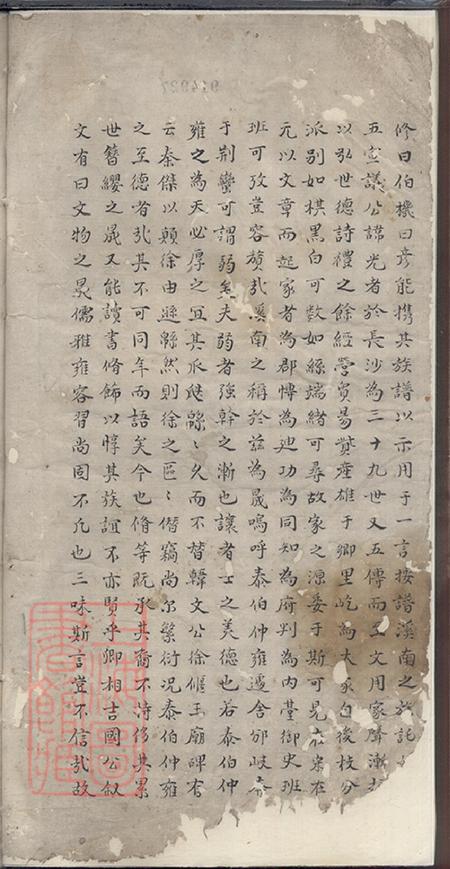 修曰伯機曰彥能携其族譜以示用于一言按譜溪南之族託
五宣議公諱光者於長沙為三十九世又五傳而至文用家
以弘世德詩禮之餘經營貿易貲產雄于鄉里屹為大家自後枝分
派別如棋黑白可数如絲端緒可尋故家之源委于斯可見在宋在
元以文章而起家者為郡博為廸功為同知為府判為内臺御史班
班可攷豈容贅哉溪南之稱於兹為晟嗚呼泰伯仲雍遜舍邠岐
于荆蠻可謂弱矣夫弱者強幹之漸也讓者士之美德也若泰伯仲
雍之為天必厚之宜其派繼緜〻久而不替韓文公徐偃王廟碑有
云秦傑以顛徐由遜緜然則徐之區〻僭竊尚尔繁衍况泰伯仲雍
之至德者哉其不可同年而語矣今也脩等既承其裔不特侈其累
世簪纓之晟又能讀書脩飾以惇其族誼不亦賢乎卿相吉國公叙
文有曰文物之晟儒雅雍容習尚固不凡也三味斯言豈不信哉故